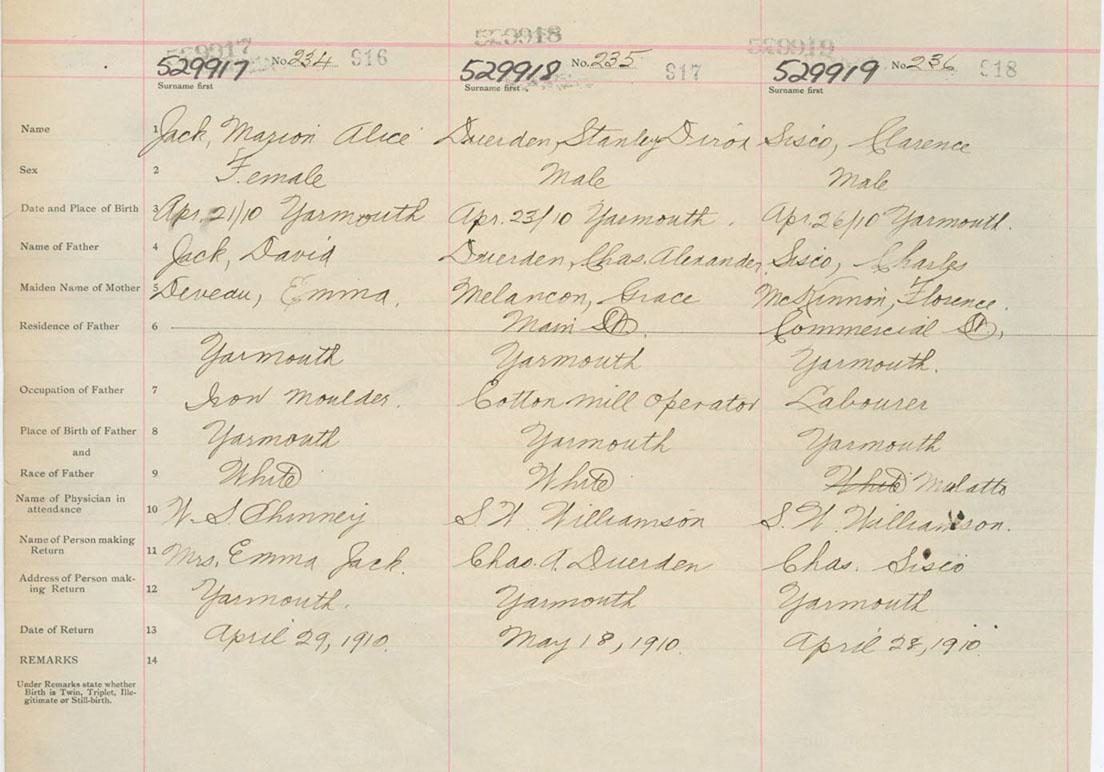 529917 529918 529919
529917 No. 234 916 529918 No. 235 917 529919 No. 236 918
Surname first Surname first Surname first
Name 1 Jack, Marion Alice Duerden, Stanley Sisco, Clarence
Sex 2 Female Male Male
Date and Place of Birth 3 Apr. 21/10 Yarmouth Apr. 23/10 Yarmouth. Apr. 26/10 Yarmouth.
Name of Father 4 Jack, David Duerden, Chas. Alexander Sisco, Charles
Maiden Name of Mother 5 Deveau, Emma, Melancon, Grace McKinnon, Florence
Residence of Father 6 Main St. Commercial St,
Yarmouth Yarmouth Yarmouth.
Occupation of Father 7 Iron Moulder. Cotton mill Operator Labourer
Place of Birth of Father 8 Yarmouth Yarmouth Yarmouth
and
Race of Father 9 White White White Mulatto
Name of Physician in
attendance 10 W. S. Phinney S W Williamson S. W. Williamson.
Name of Person making
Return 11 Mrs. Emma Jack. Chas. A. Duerden Chas. Sisco
Address of Person mak-
ing Return 12 Yarmouth. Yarmouth Yarmouth
Date of Return 13 April 29, 1910. May 18, 1910. April 28, 1910
REMARKS 14
Under Remarks state whether
Birth is Twin, Triplet, Ille-
gitimate or Still-birth.